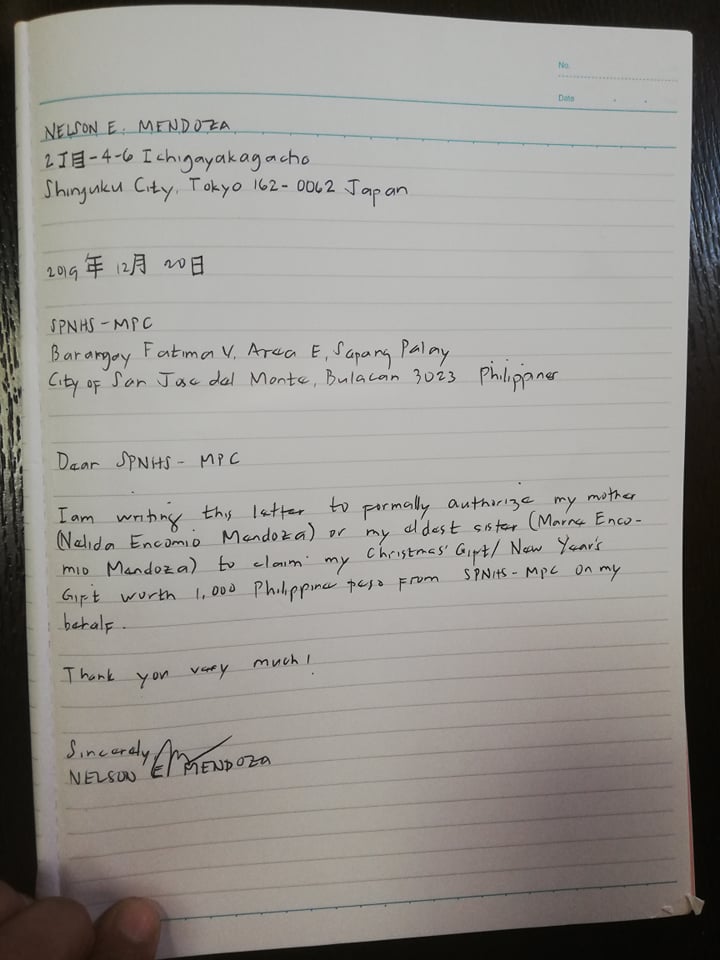 No.
Date . .
NELSON E. MENDOZA
2丁目-4-6 Ichigayakagacho
Shinjuku City, Tokyo 162-0062 Japan
2019年 12月 20日
SPNHS-MPC
Barangay Fatima V, Area E, Sapang Palay
City of San Jose del Monte, Bulacan 3023 Philippines
Dear SPNHS-MPC
I am writing this letter to formally authorize my mother
(Nelida Encomio Mendoza) or my eldest sister (Marne Enco-
mio Mendoza) to claim my Christmas' Gift/ New Year's
Gift worth 1,000 Philippine peso from SPNHS-MPC on my
behalf.
Thank you very much!
Sincerely
NELSON E. MENDOZA